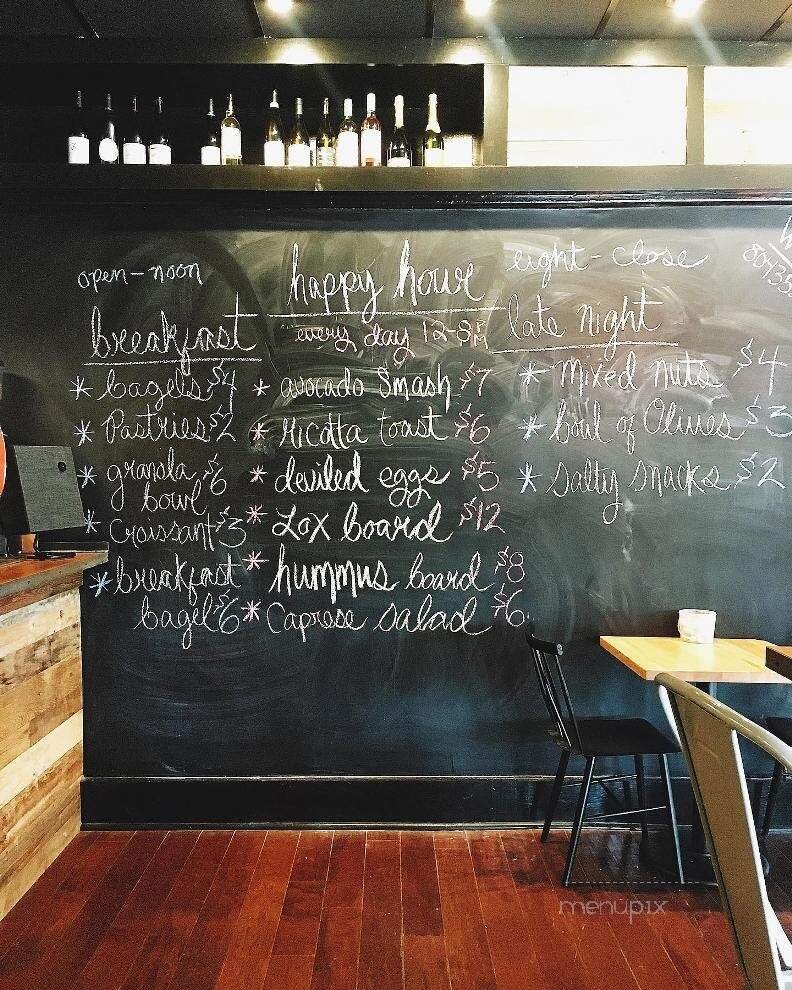 open-noon
breakfast
* bagels $4
* Pastries $2
* granola $6
bowl
* Croissant $3
* breakfast
bagel $6
happy hour
every day 12-8PM
* avocado Smash $7
* ricotta toast $6
* deviled eggs $5
* Lox board $12
* hummus board $8
* Caprese salad $6
eight-close
late night
* mixed nuts $4
* bowl of Olives $3
* Salty snacks $2
menupix